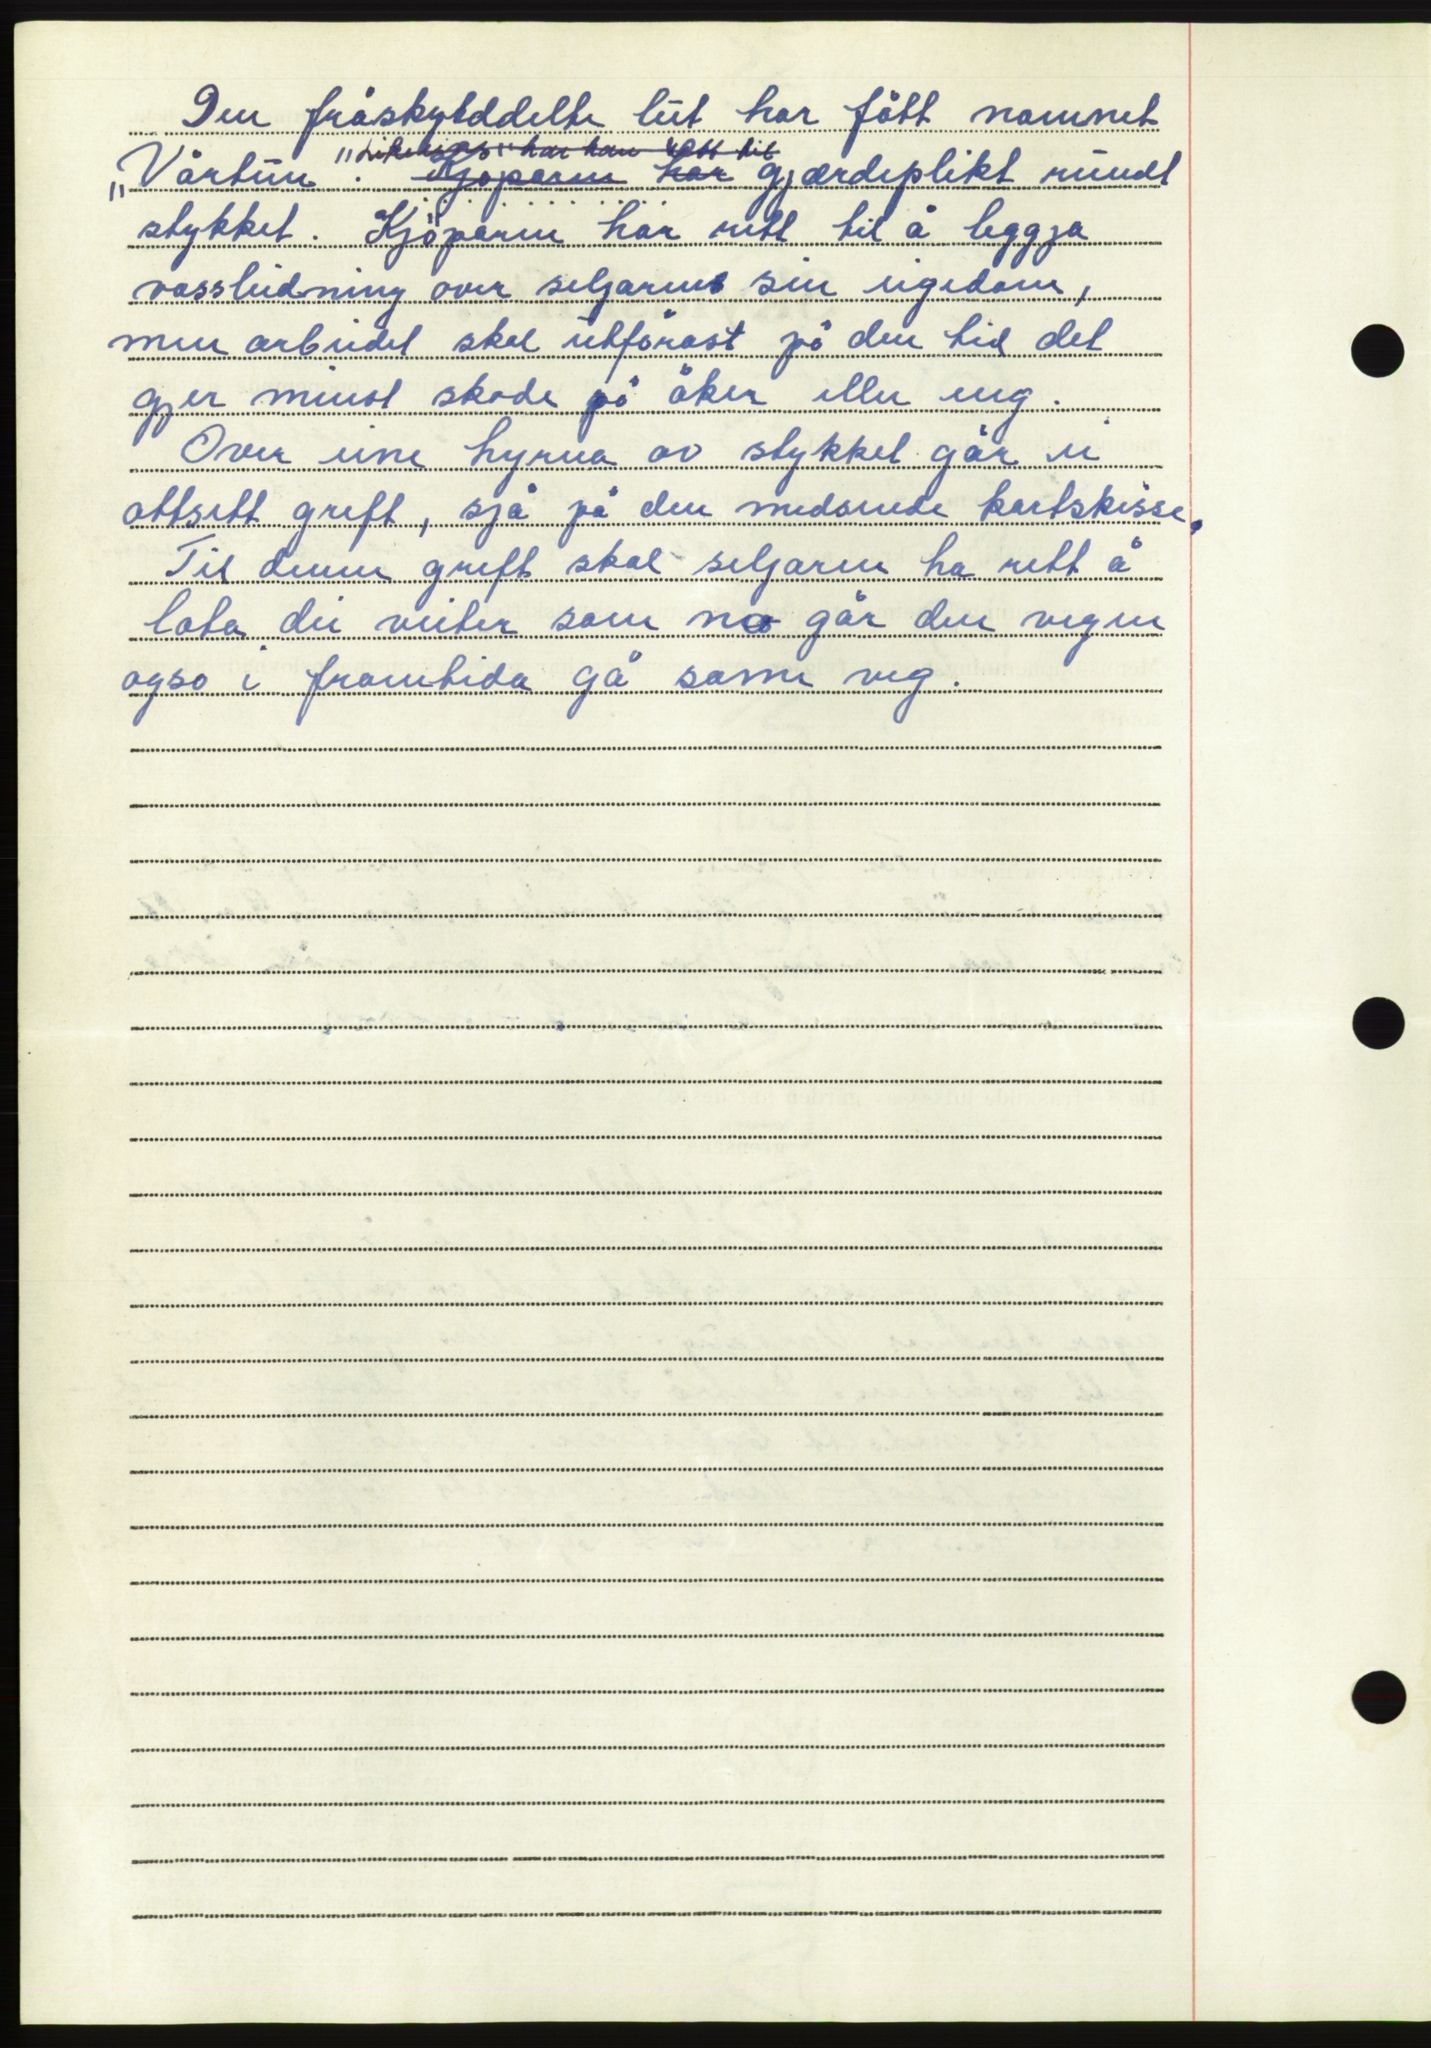 Den fråskyldde​lte lut har fått namnet
"Vårtun". Kjøparen har gjærdeplikt rundt
stykket. Kjöparen har rett til å leggja
vassleidning over seljarens sin eigedom,
men arbeidet skal utförast på den tid det
gjer minst skade på åker eller eng.
Over eine hyrna av stykket går ei
attsett greft, sjå på den medsende kartskisse.
Til denne greft skal seljaren ha rett å
lata dei veiter som no går den vegen
også i framtida gå same veg.